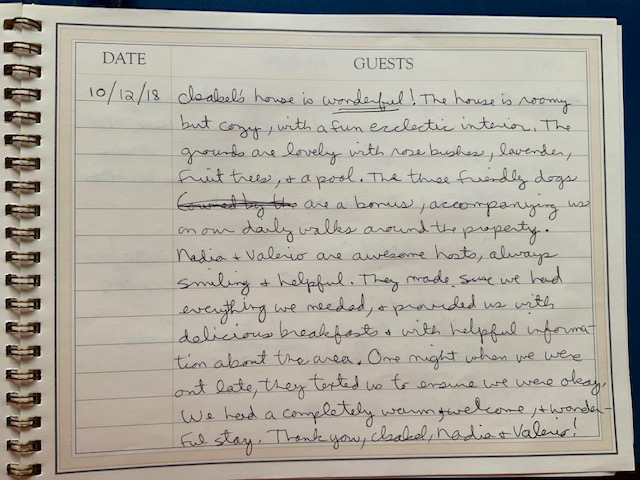 DATE GUESTS
10/12/18 Isabel's house is wonderful! The house is roomy
but cozy, with a fun ecclectic interior. The
grounds are lovely with rose bushes, lavender,
fruit trees, + a pool. The three friendly dogs
(owned by the are a bonus, accompanying us
on our daily walks around the property.
Nadia + Valerio are awesome hosts, always
smiling + helpful. They made sure we had
everything we needed, + provided us with
delicious breakfasts + with helpful informa-
tion about the area. One night when we were
out late, they texted us to ensure we were okay.
We had a completely warm, welcome, + wonder-
ful stay. Thank you, Isabel, Nadia + Valerio!